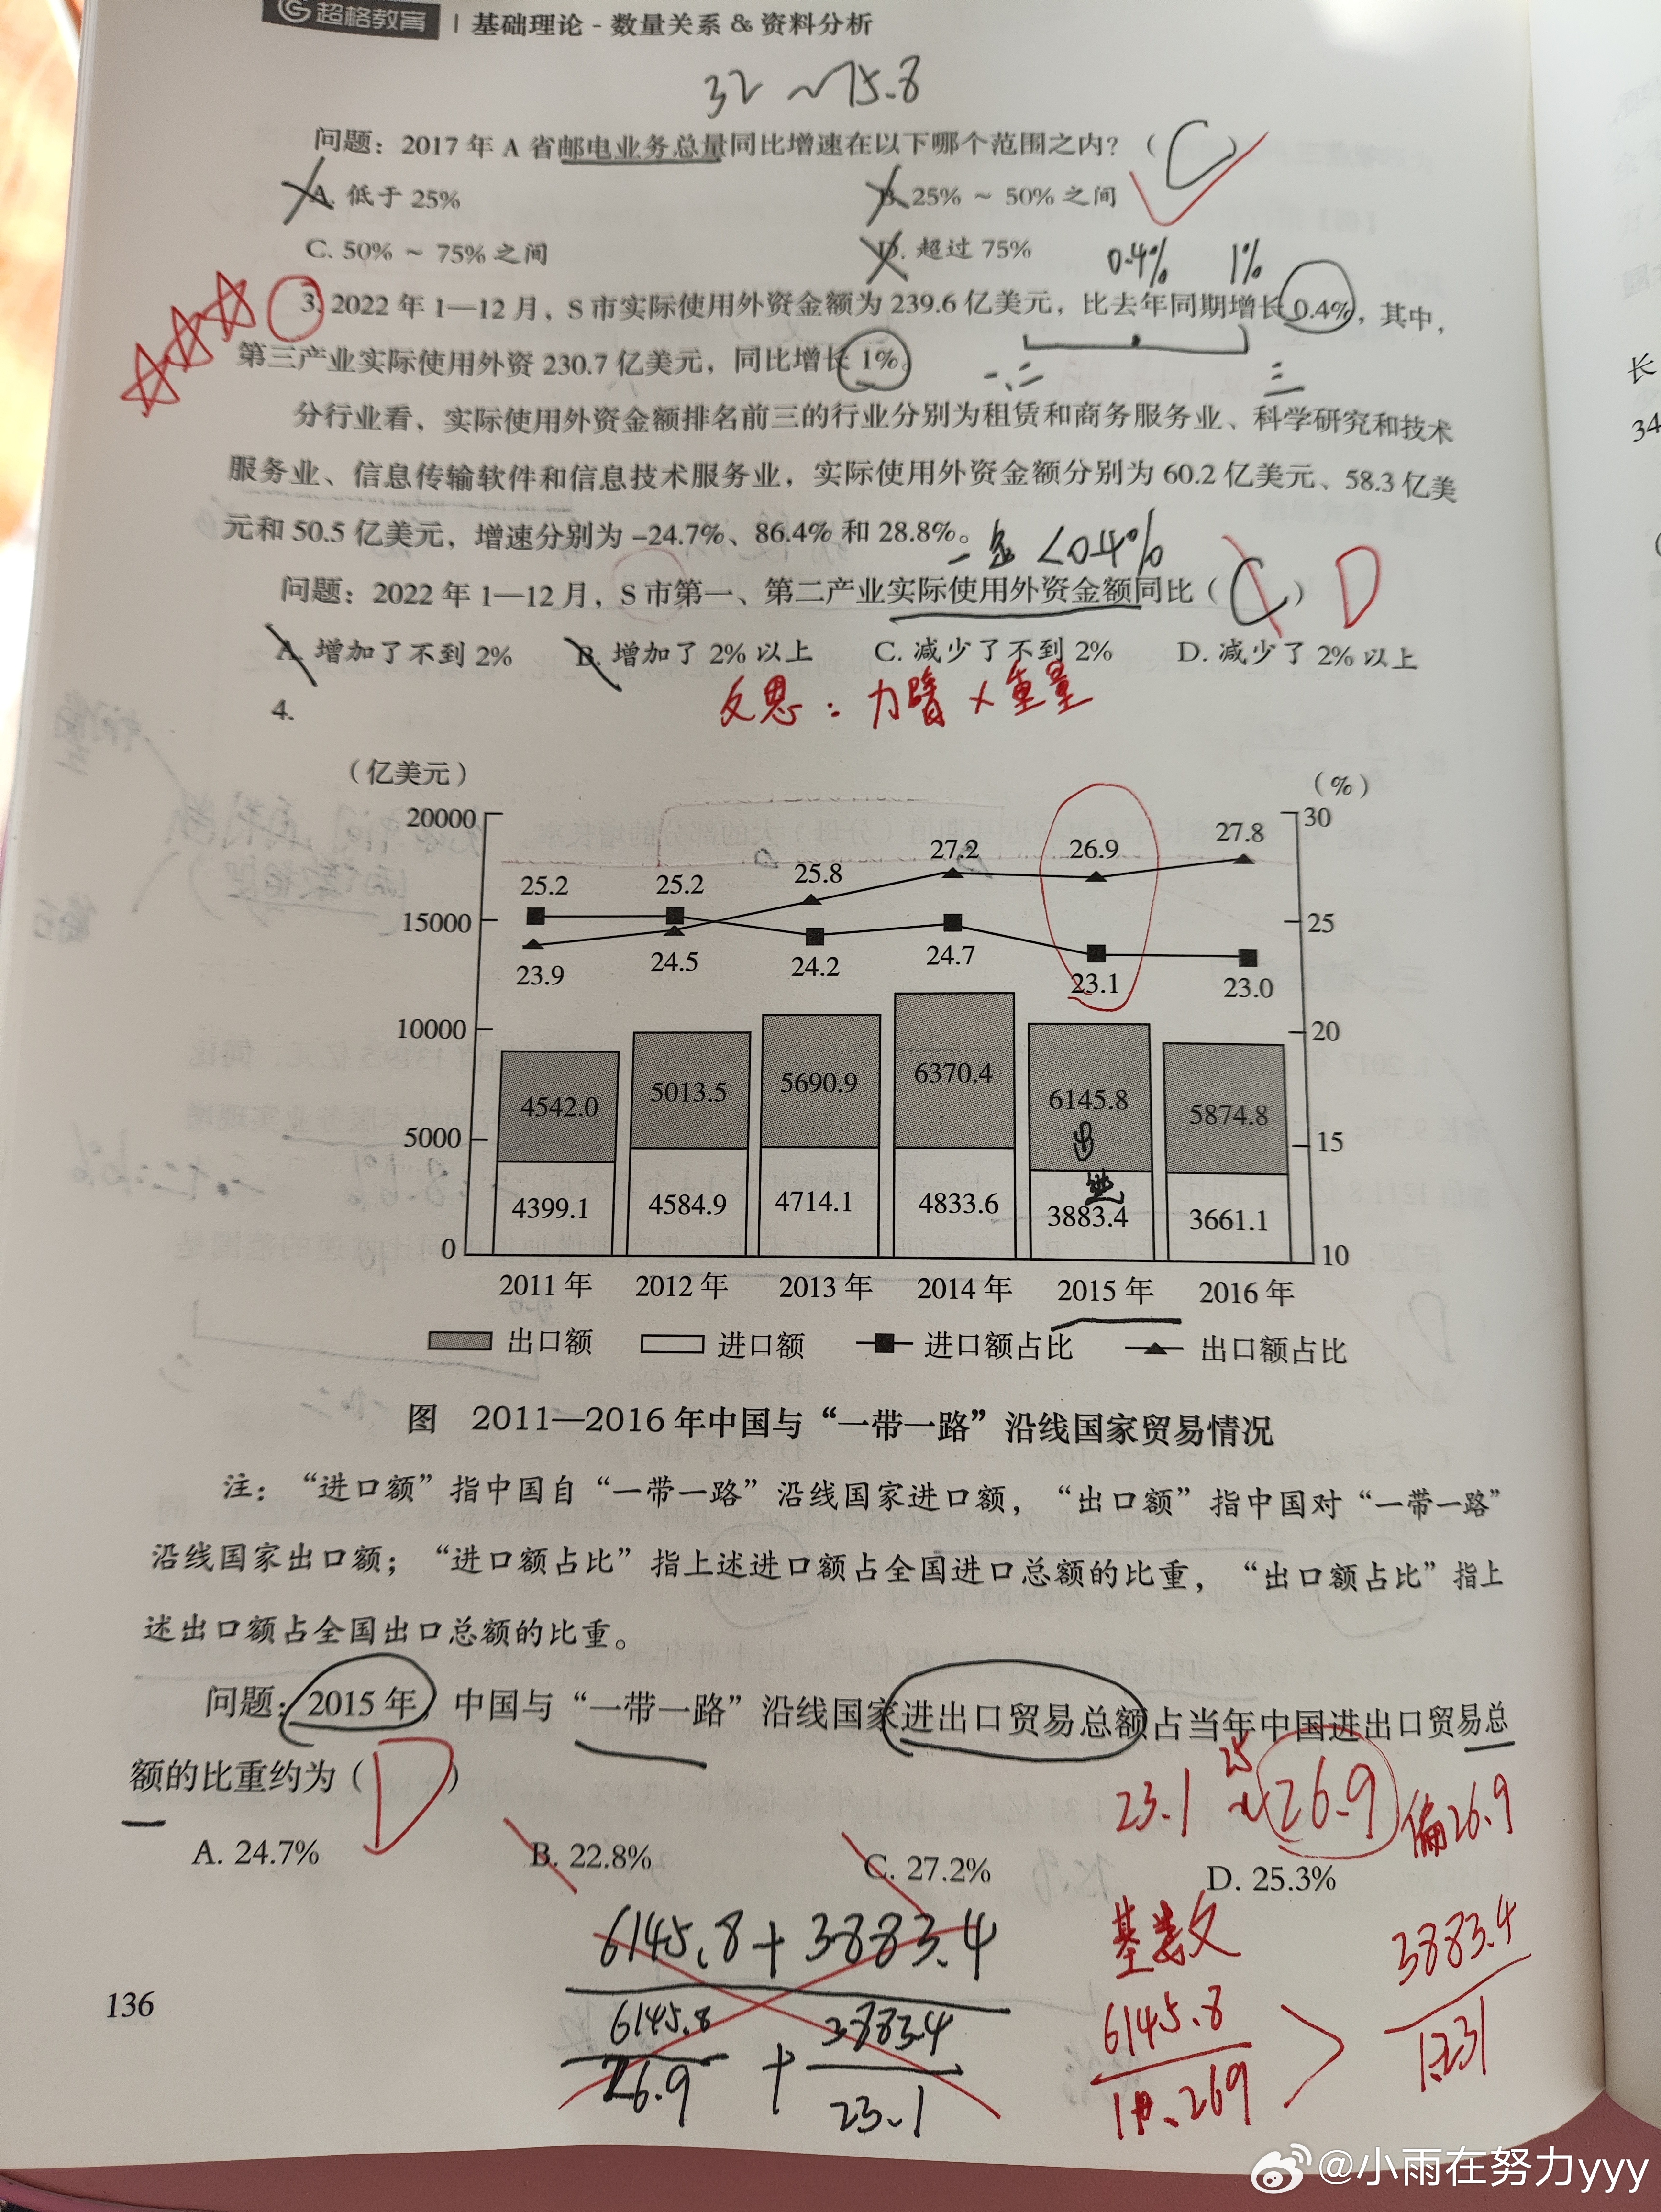 超格教育 | 基础理论 - 数量关系 & 资料分析
32 ~ 75.8
问题：2017 年 A 省邮电业务总量同比增速在以下哪个范围之内？（ C ）
A. 低于 25% B. 25% ~ 50% 之间
C. 50% ~ 75% 之间 D. 超过 75%
0.4% 1%
3. 2022 年 1—12 月，S 市实际使用外资金额为 239.6 亿美元，比去年同期增长 0.4%，其中，
第三产业实际使用外资 230.7 亿美元，同比增长 1%。
一、二 三
分行业看，实际使用外资金额排名前三的行业分别为租赁和商务服务业、科学研究和技术
服务业、信息传输软件和信息技术服务业，实际使用外资金额分别为 60.2 亿美元、58.3 亿美
元和 50.5 亿美元，增速分别为 –24.7%、86.4% 和 28.8%。
<0.4%
问题：2022 年 1—12 月，S 市第一、第二产业实际使用外资金额同比（ C ） D
A. 增加了不到 2% B. 增加了 2% 以上 C. 减少了不到 2% D. 减少了 2% 以上
反思：力臂 × 重量
4.
（亿美元） （%）
20000 30
27.2 26.9 27.8
25.2 25.2 25.8
15000 25
23.9 24.5 24.2 24.7 23.1 23.0
10000 20
4542.0 5013.5 5690.9 6370.4 6145.8 5874.8
出
5000 15
进
4399.1 4584.9 4714.1 4833.6 3883.4 3661.1
0 10
2011 年 2012 年 2013 年 2014 年 2015 年 2016 年
出口额 进口额 进口额占比 出口额占比
图 2011—2016 年中国与“一带一路”沿线国家贸易情况
注：“进口额”指中国自“一带一路”沿线国家进口额，“出口额”指中国对“一带一路”
沿线国家出口额；“进口额占比”指上述进口额占全国进口总额的比重，“出口额占比”指上
述出口额占全国出口总额的比重。
问题：2015 年，中国与“一带一路”沿线国家进出口贸易总额占当年中国进出口贸易总
额的比重约为（ D ）
25
23.1 ~ 26.9 偏26.9
A. 24.7% B. 22.8% C. 27.2% D. 25.3%
6145.8+3883.4
6145.8 + 3883.4
26.9 23.1
基数
6145.8 > 3883.4
1.269 1.231
136
@小雨在努力yyy